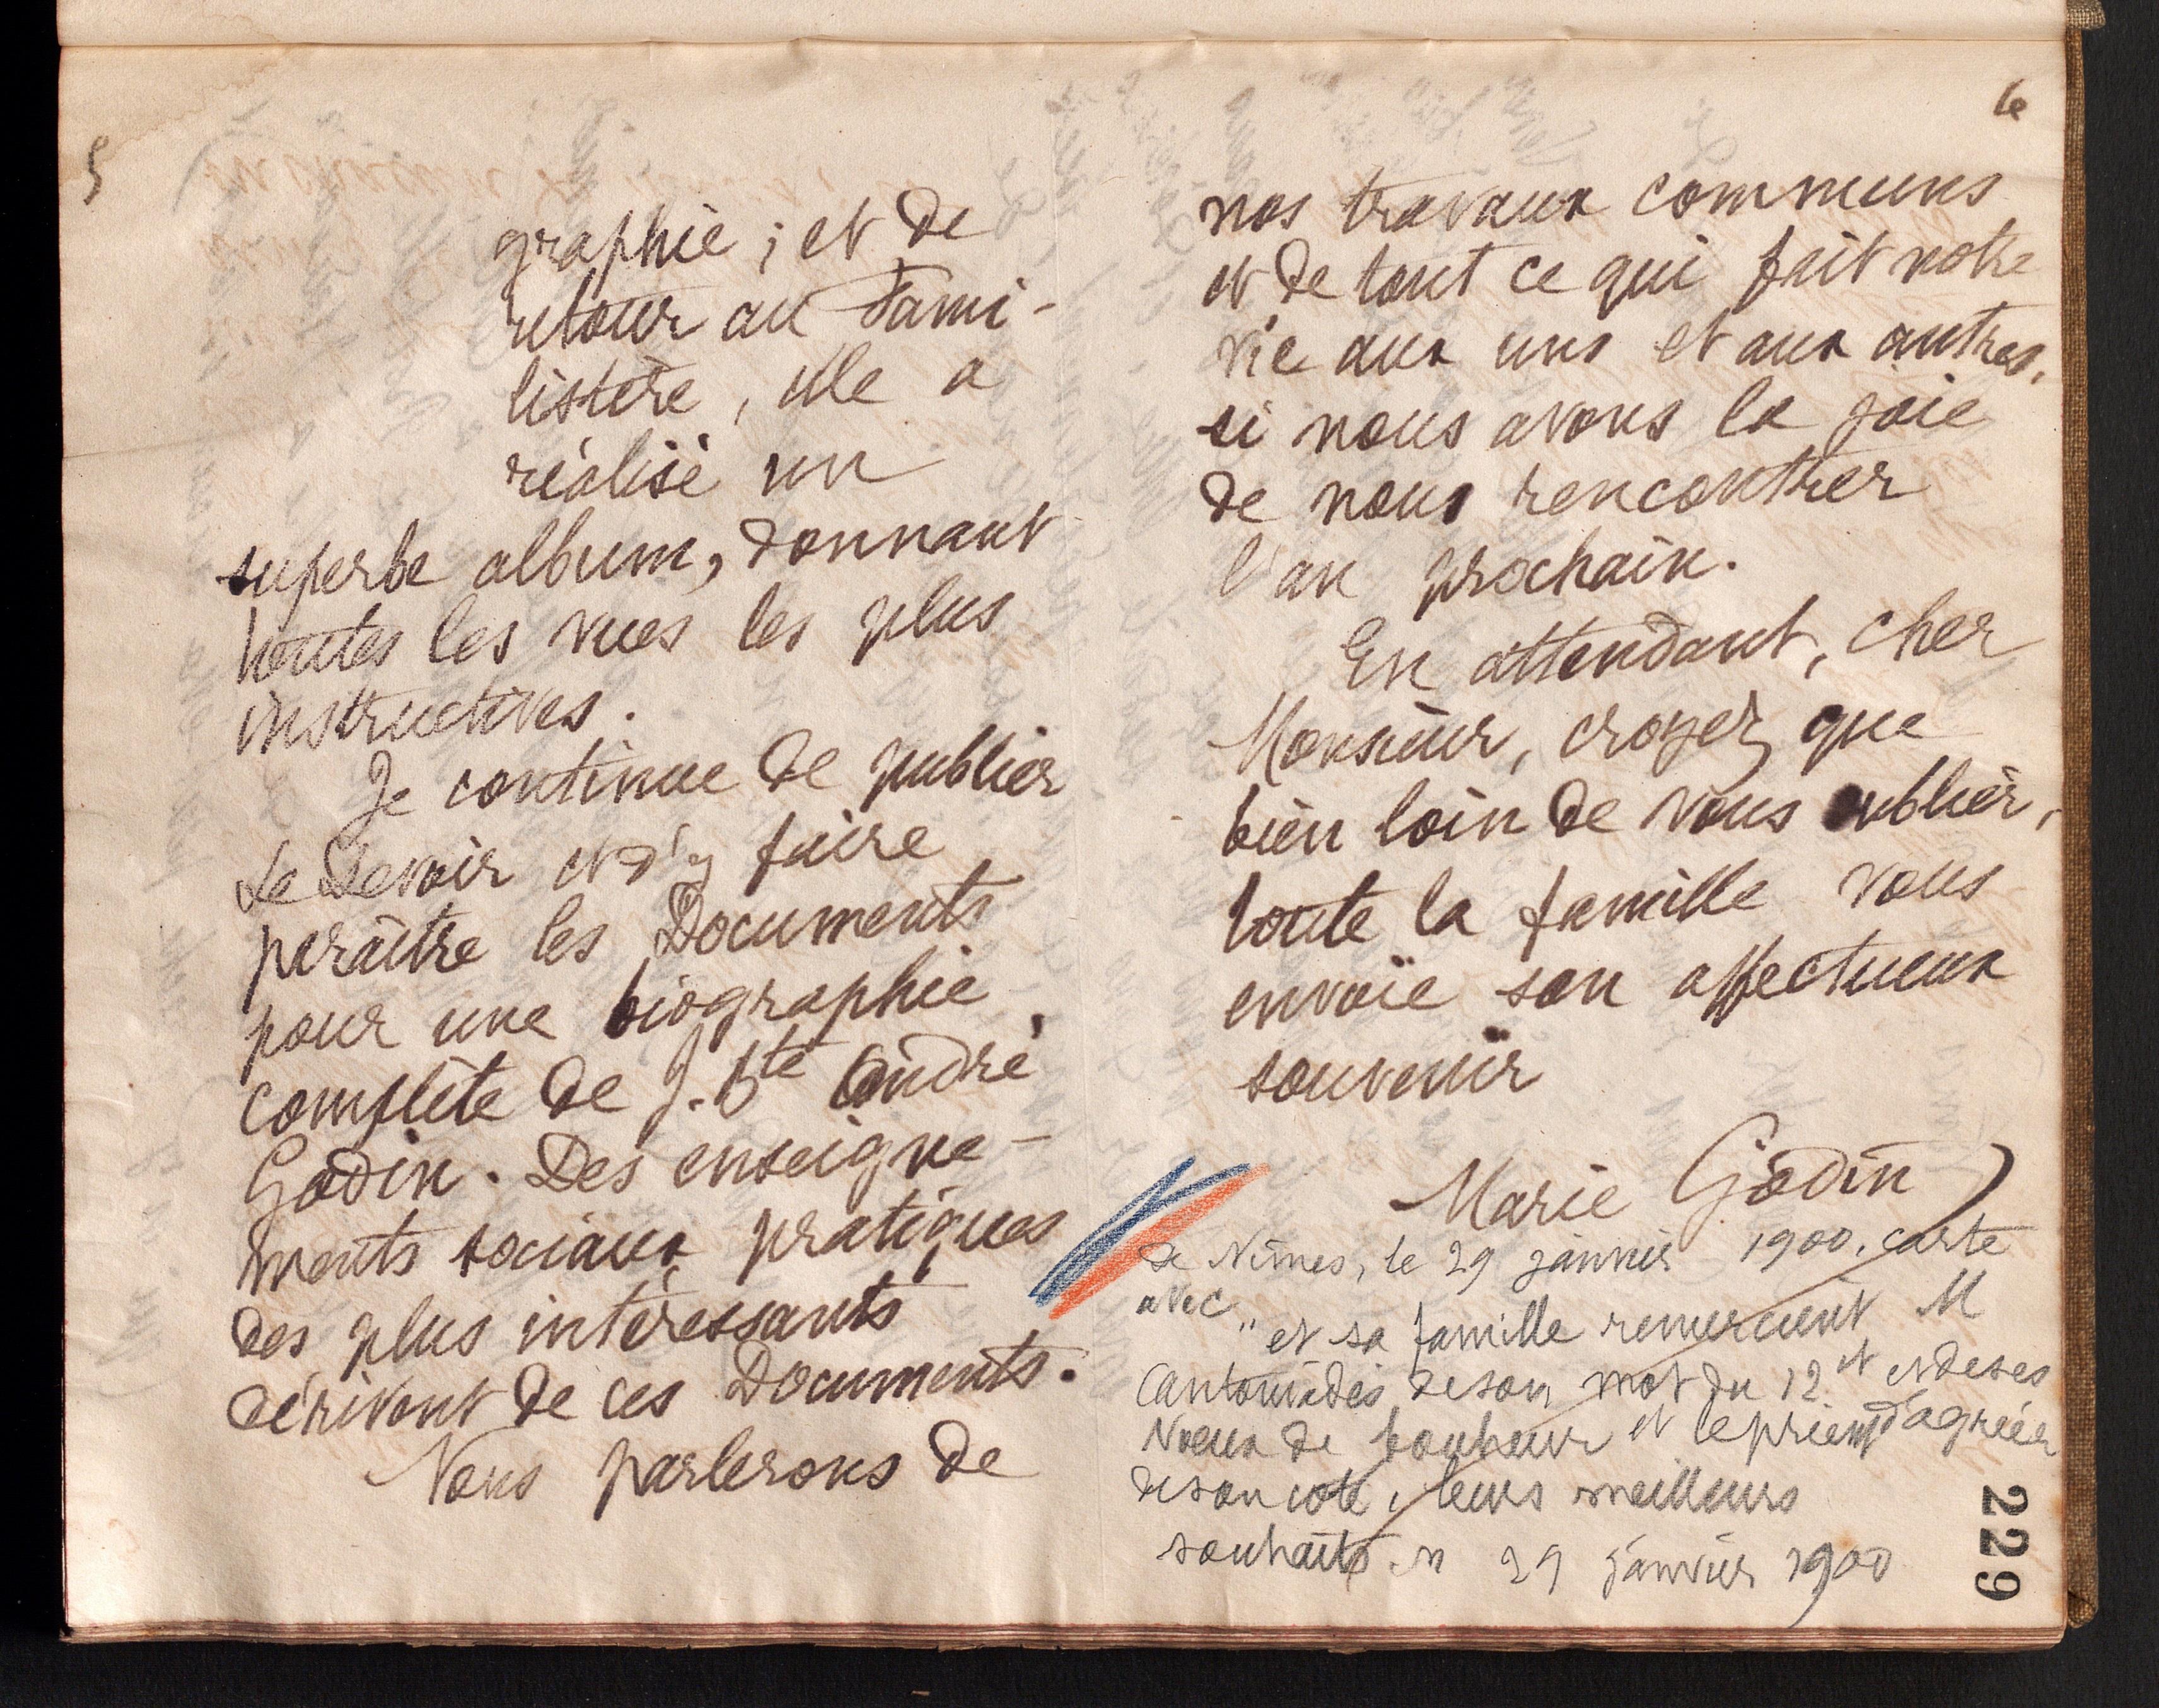 5
graphie ; et de
retour au Fami-
listère, elle a
réalisé un
superbe album, donnant
toutes les vues les plus
instructives.
Je continue de publier
Le Devoir et d'y faire
paraître les Documents
pour une biographie
complète de J. Bte André
Godin. Des enseigne-
ments sociaux pratiques
des plus intéressants
dérivent de ces Documents.
Nous parlerons de
6
nos travaux communs
et de tout ce qui fait notre
vie aux uns et aux autres,
si nous avons la joie
de nous rencontrer
l'an prochain.
En attendant, cher
Monsieur, croyez que
bien loin de vous oublier,
toute la famille vous
envoie son affectueux
souvenir
Marie Godin
de Nimes, le 29 janvier 1900. carte
avec " et sa famille remercient M
Cantonidés de son mot du 12 et et de ses
vœux de bonheur et le prient d'agréer
de son coté, leurs meilleurs
souhaits. 29 janvier 1900
229